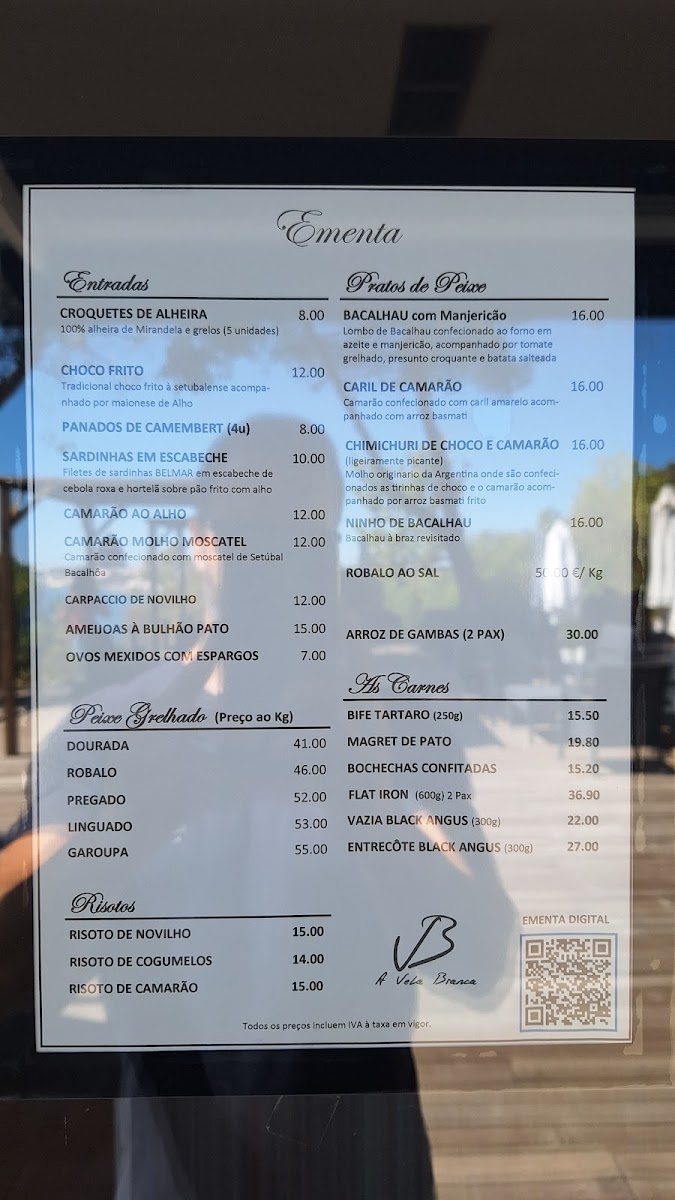 Ementa
Entradas
CROQUETES DE ALHEIRA 8.00
100% alheira de Mirandela e grelos (5 unidades)
CHOCO FRITO 12.00
Tradicional choco frito à setubalense acompa-
nhado por maionese de Alho
PANADOS DE CAMEMBERT (4u) 8.00
SARDINHAS EM ESCABECHE 10.00
Filetes de sardinhas BELMAR em escabeche de
cebola roxa e hortelã sobre pão frito com alho
CAMARÃO AO ALHO 12.00
CAMARÃO MOLHO MOSCATEL 12.00
Camarão confecionado com moscatel de Setúbal
Bacalhôa
CARPACCIO DE NOVILHO 12.00
AMEIJOAS À BULHÃO PATO 15.00
OVOS MEXIDOS COM ESPARGOS 7.00
Peixe Grelhado (Preço ao Kg)
DOURADA 41.00
ROBALO 46.00
PREGADO 52.00
LINGUADO 53.00
GAROUPA 55.00
Risotos
RISOTO DE NOVILHO 15.00
RISOTO DE COGUMELOS 14.00
RISOTO DE CAMARÃO 15.00
Pratos de Peixe
BACALHAU com Manjericão 16.00
Lombo de Bacalhau confecionado ao forno em
azeite e manjericão, acompanhado por tomate
grelhado, presunto croquante e batata salteada
CARIL DE CAMARÃO 16.00
Camarão confecionado com caril amarelo acom-
panhado com arroz basmati
CHIMICHURI DE CHOCO E CAMARÃO 16.00
(ligeiramente picante)
Molho originario da Argentina onde são confeci-
onados as tirinhas de choco e o camarão acom-
panhado por arroz basmati frito
NINHO DE BACALHAU 16.00
Bacalhau à braz revisitado
ROBALO AO SAL 50.00 €/ Kg
ARROZ DE GAMBAS (2 PAX) 30.00
As Carnes
BIFE TARTARO (250g) 15.50
MAGRET DE PATO 19.80
BOCHECHAS CONFITADAS 15.20
FLAT IRON (600g) 2 Pax 36.90
VAZIA BLACK ANGUS (300g) 22.00
ENTRECÔTE BLACK ANGUS (300g) 27.00
VB
A Vela Branca
EMENTA DIGITAL
Todos os preços incluem IVA à taxa em vigor.